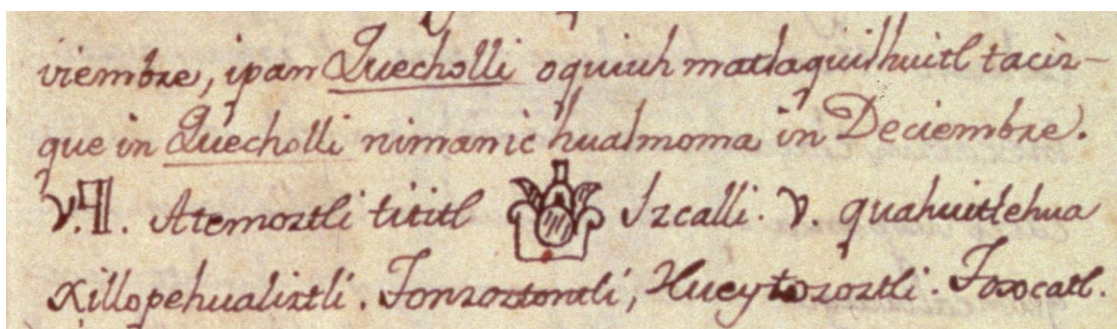 viembre, ipan Quecholli oquiuh matlaquilhuitl taciz-
que in Quecholli nimanic hualmoma in Deciembre.
Atemoztli tititl Izcalli. V. quahuitlehua
Xillopehualiztli. Tonzoztontli, Hueytozoztli. Toxocatl.